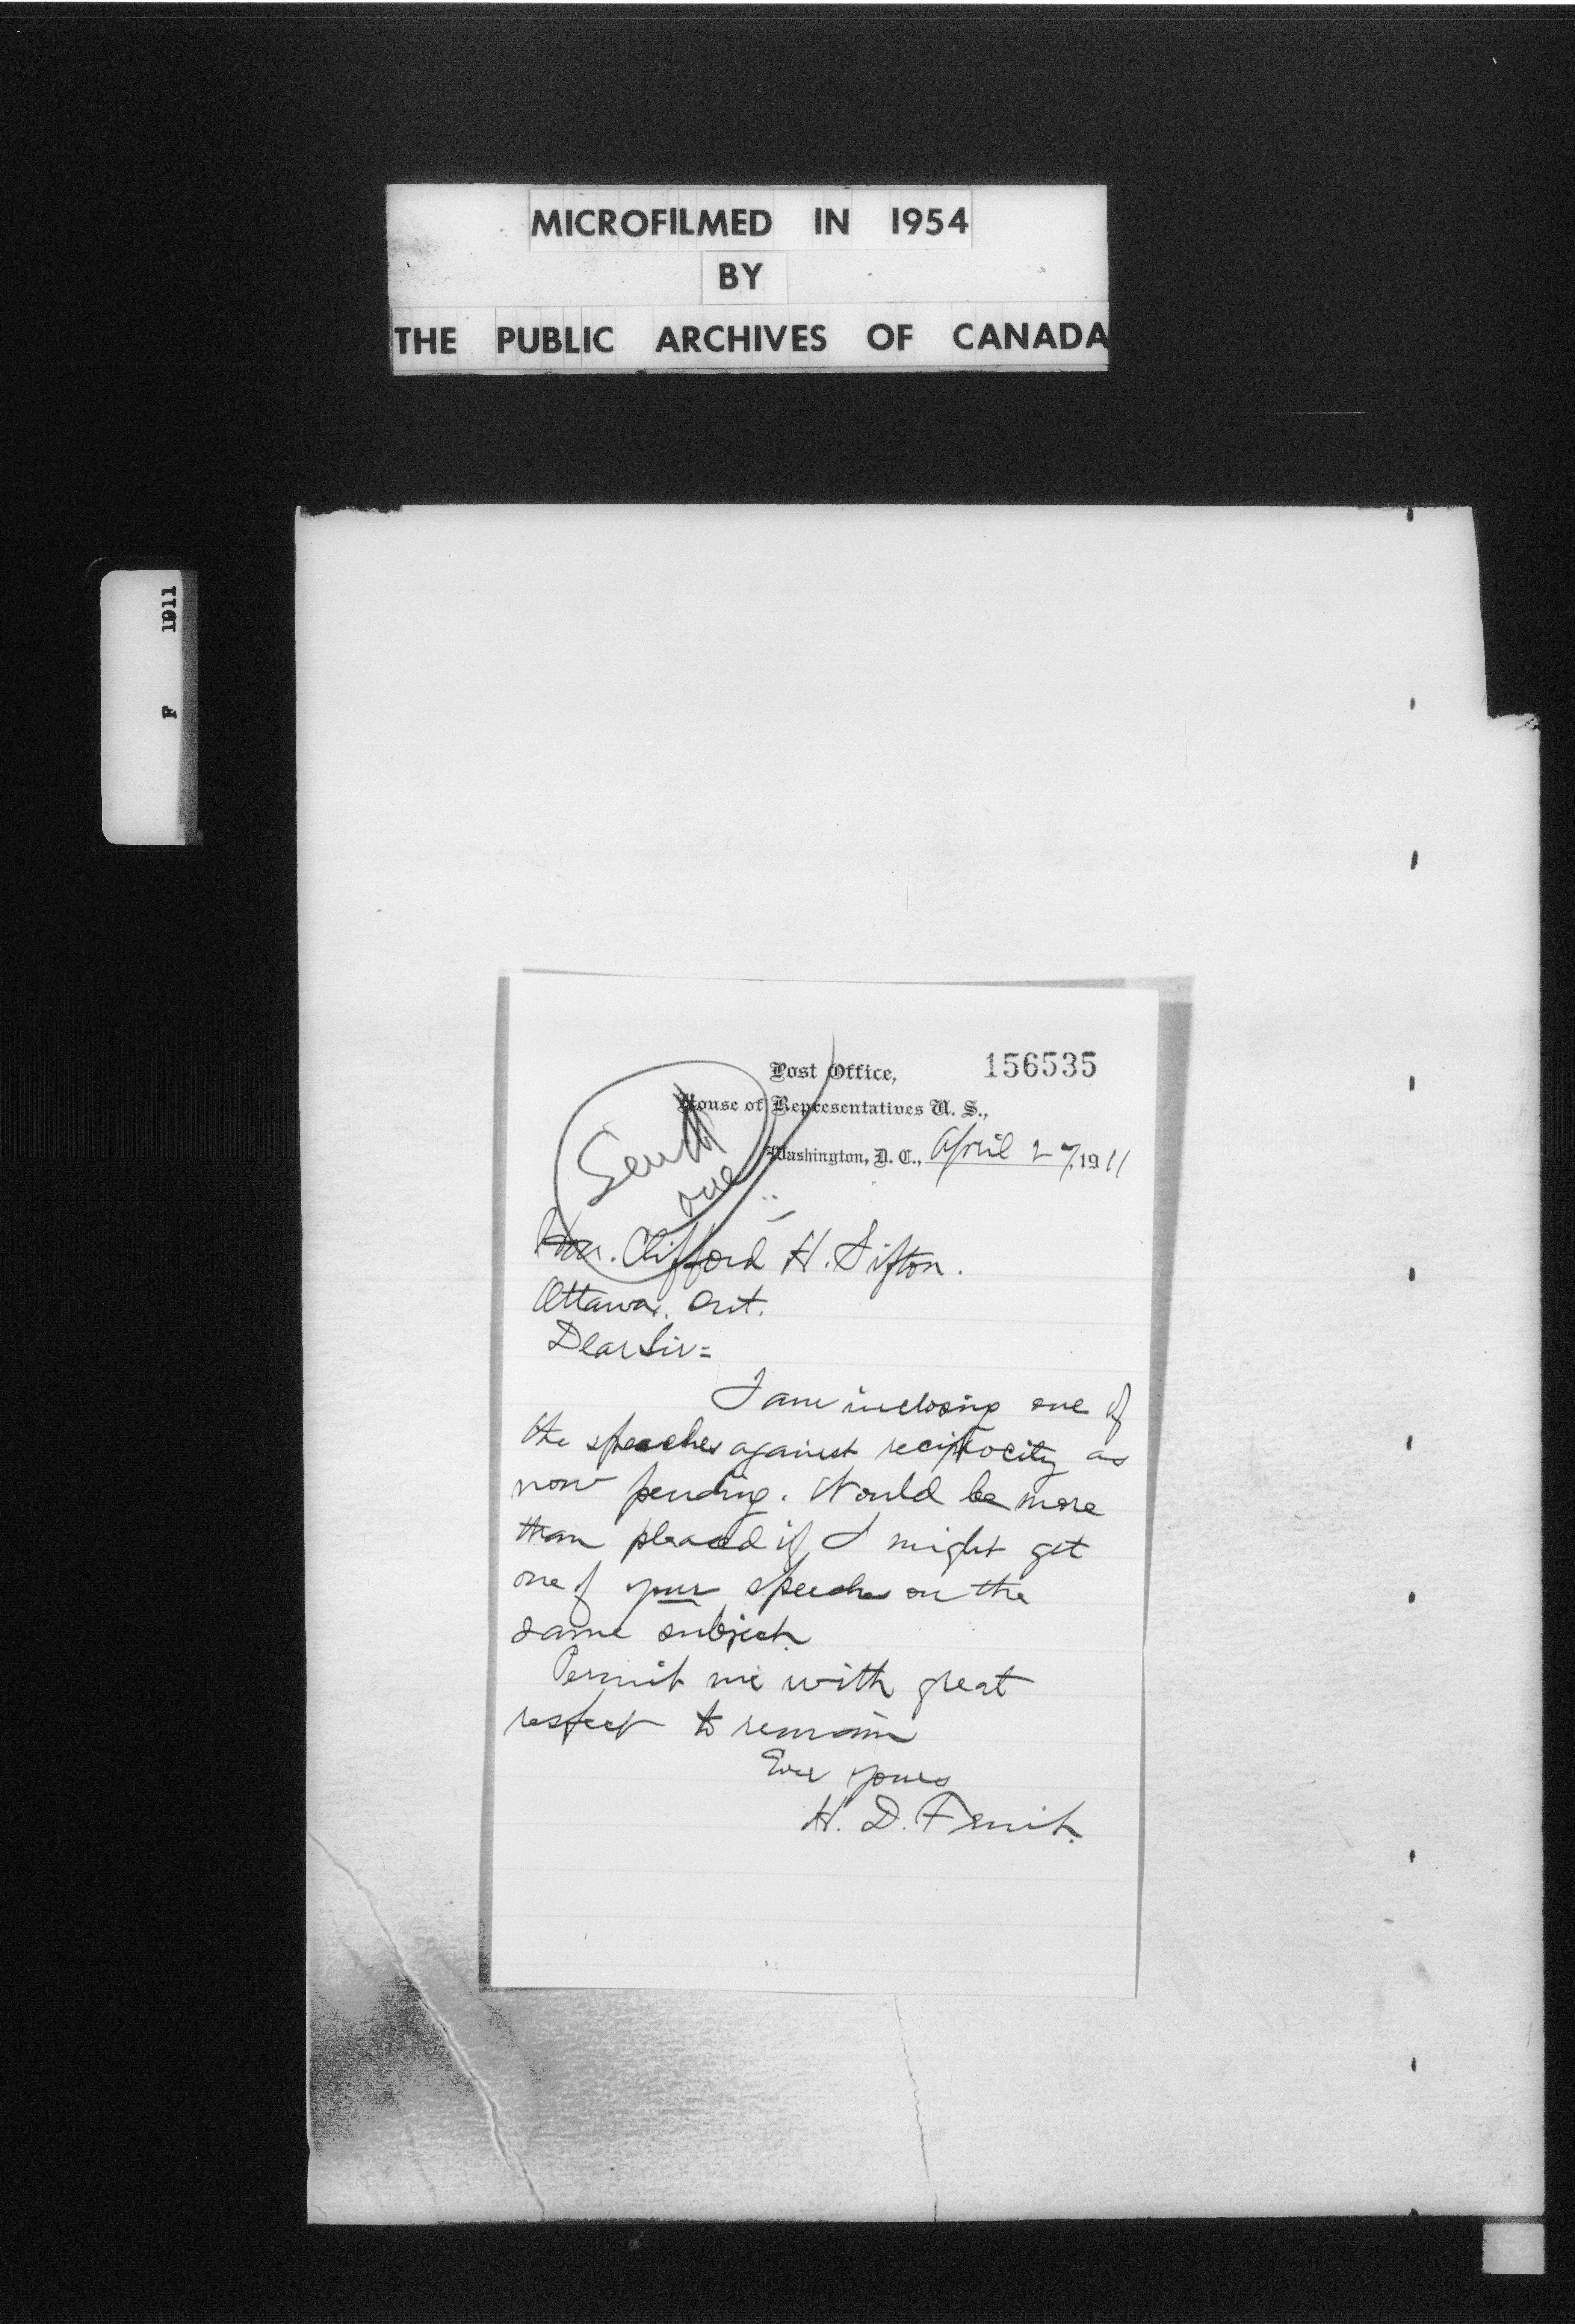 MICROFILMED IN 1954
BY
THE PUBLIC ARCHIVES OF CANADA
F 1911
156535
Post Office,
House of Representatives U. S.,
Washington, D. C., April 27, 1911
Sent
one
Hon. Clifford H. Sifton.
Ottawa, Ont.
Dear Sir=
I am inclosing one of
the speeches against reciprocity as
now pending. Would be more
than pleased if I might get
one of your speeches on the
same subject.
Permit me with great
respect to remain
Ever yours
H. D.